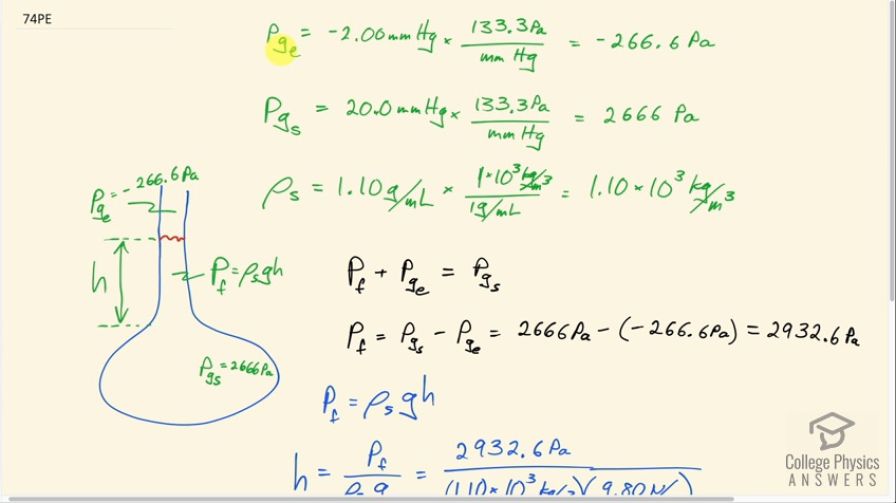 74PE
P_ge = -2.00 mmHg × 133.3Pa / mmHg = -266.6 Pa
P_gs = 20.0mmHg × 133.3Pa / mmHg = 2666 Pa
ρ_s = 1.10g/mL × 1×10³ kg/m³ / 1g/mL = 1.10×10³ kg/m³
P_ge = -266.6Pa
h
P_f = ρ_s g h
P_gs = 2666Pa
P_f + P_ge = P_gs
P_f = P_gs - P_ge = 2666Pa - (-266.6Pa) = 2932.6Pa
P_f = ρ_s g h
h = P_f / ρ_s g = 2932.6Pa / (1.10×10³ kg/m³)(9.80 N/
College Physics
ANSWERS